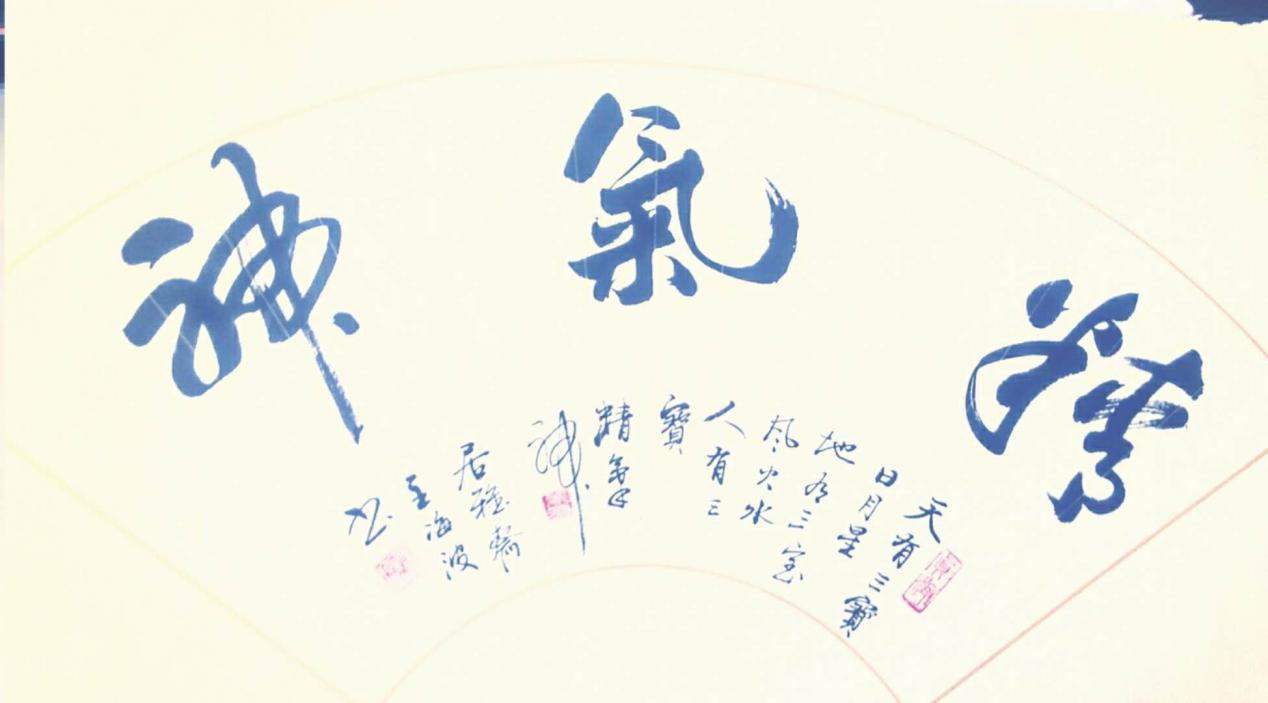 精
氣
神
天有三寶
日月星
地有三宝
風火水
人有三
寶
精氣
神
居雅齋
王海波
书